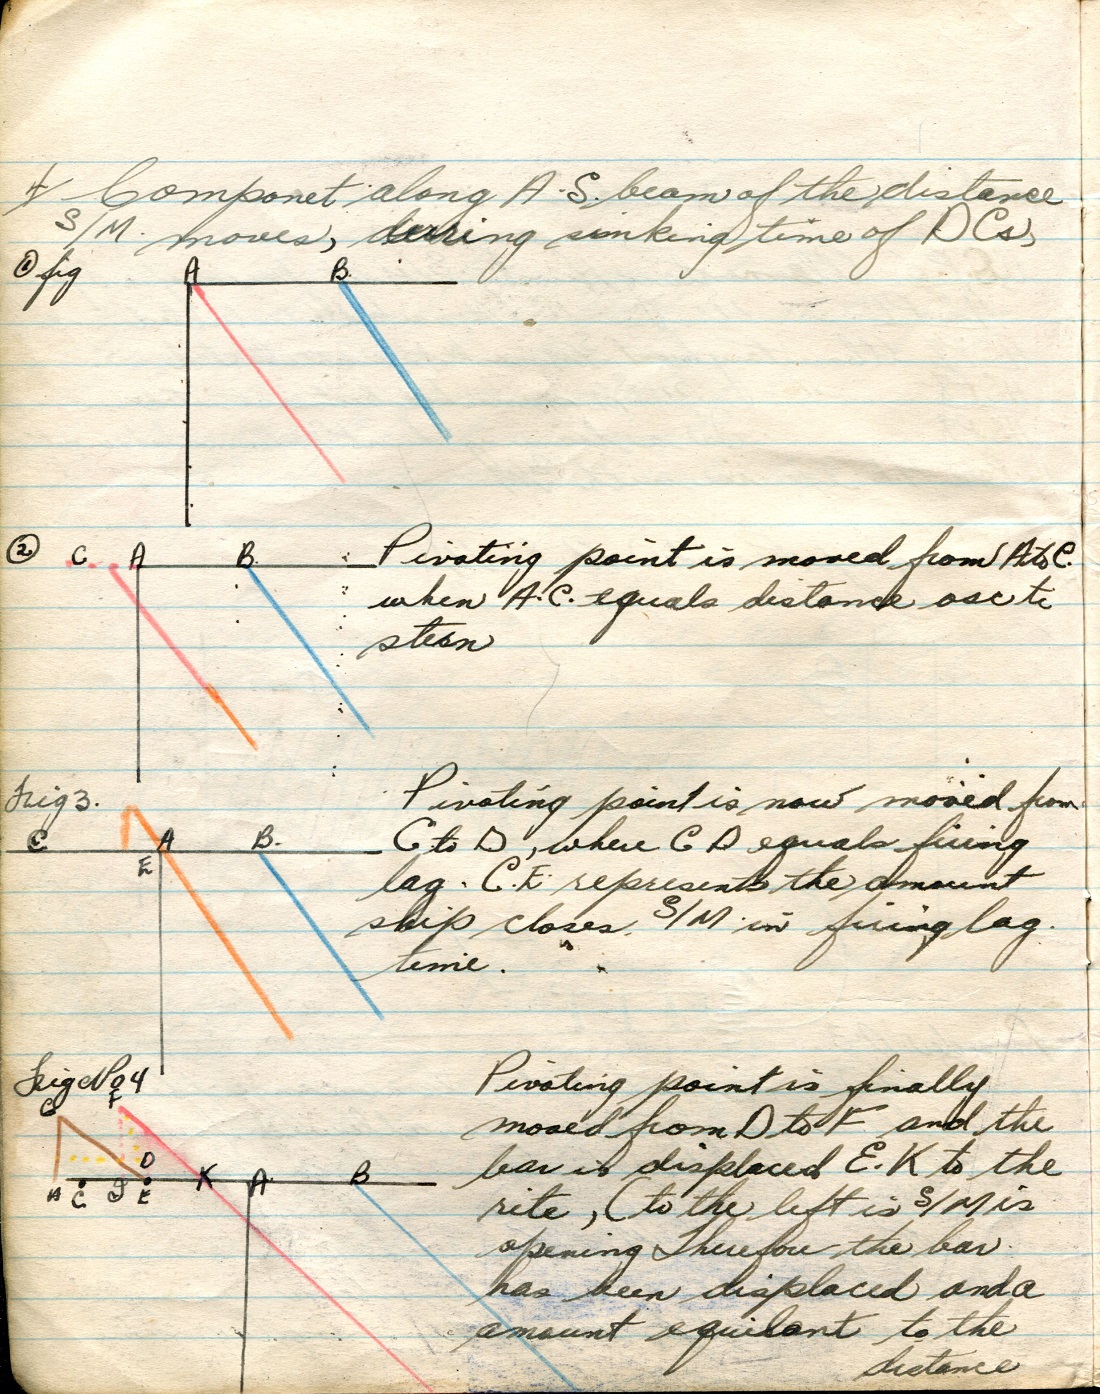 4/ Componet along A.S. beam of the distance
S/M. moves, during sinking time of DCs,
① fig
A B
② C A B
Pivoting point is moved from A to C.
when A.C. equals distance osc to
stern
Fig 3.
C A B.
E
Pivoting point is now moved from
C to D, where C D equals firing
lag. C.E. represents the amount
ship closes S/M. in firing lag
time.
Fig No 4
G F
D K A B
H C J E
Pivoting point is finally
moved from D to F and the
bar is displaced E.K to the
rite, (to the left is S/M is
opening Therefore the bar.
has been displaced and a
amount equilant to the
distance